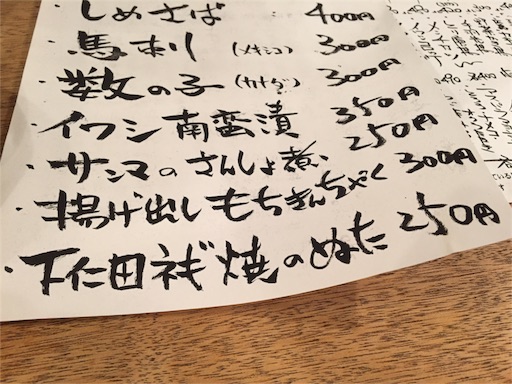 ・しめさば 400円
・馬刺(メキシコ) 300円
・数の子(カナダ) 300円
・イワシ南蛮漬 350円
・サンマのさんしょ煮 250円
・揚げ出しもちきんちゃく 300円
・下仁田ネギ焼のぬた 250円